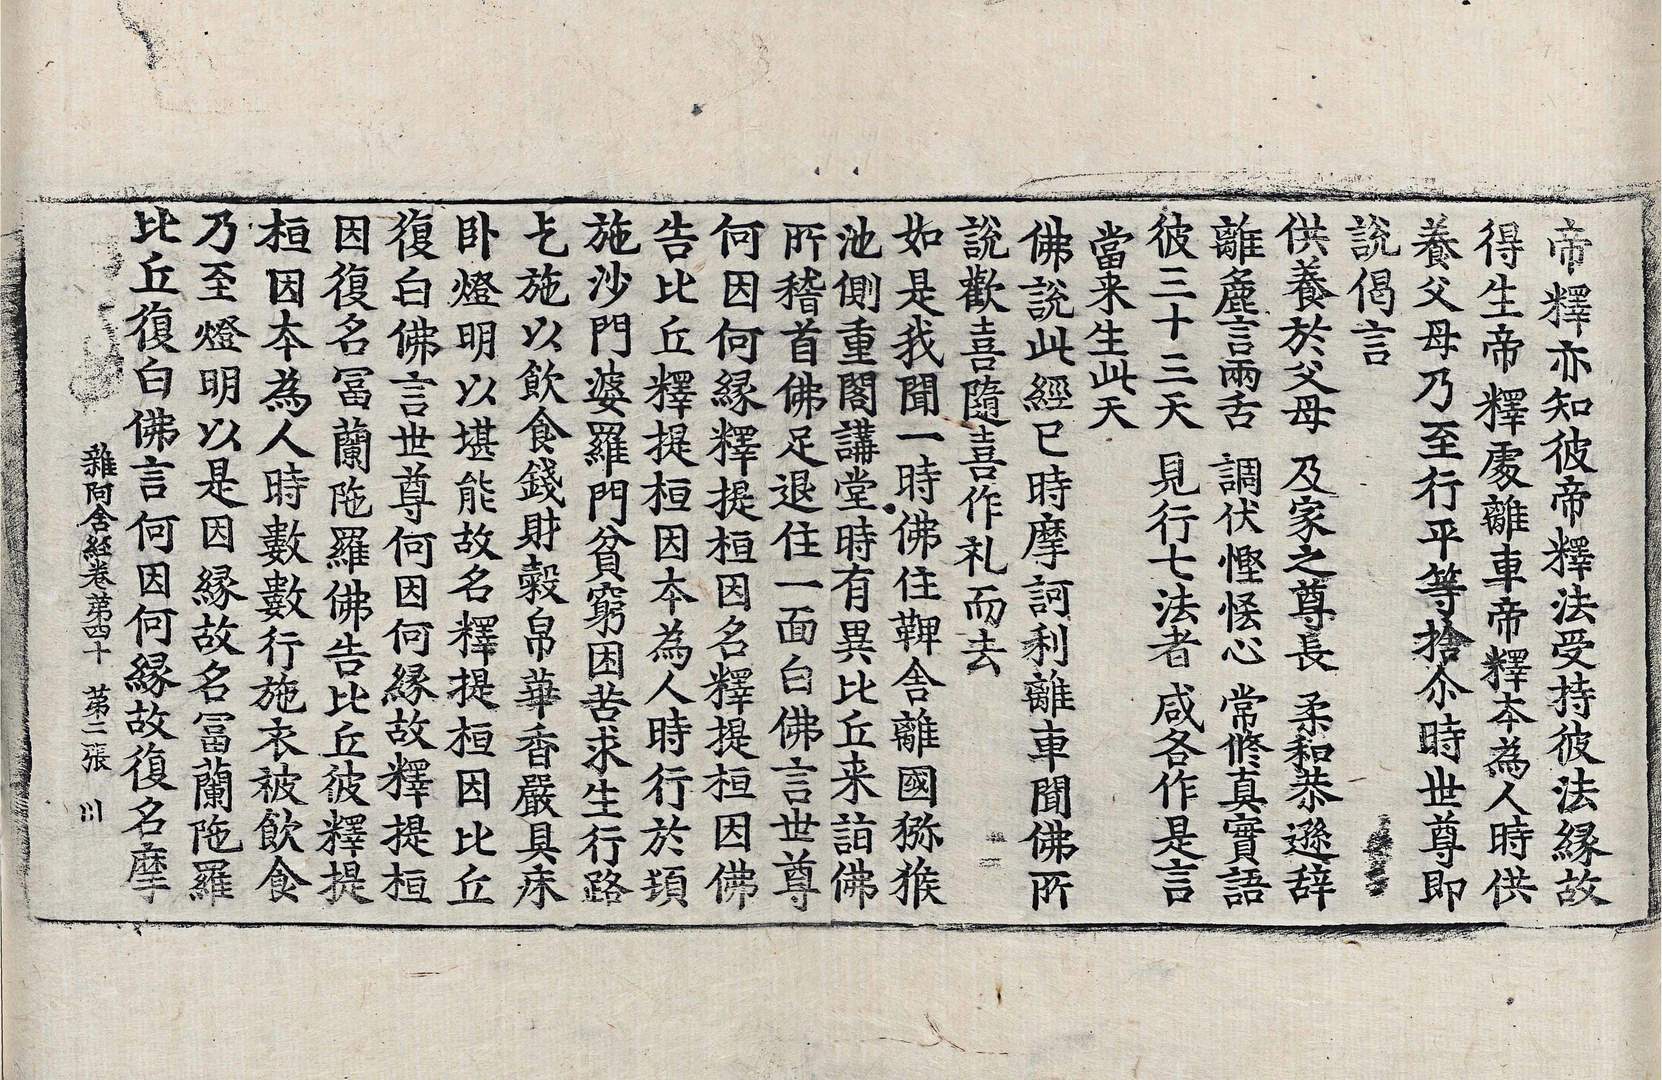 帝釋亦知彼帝釋法受持彼法縁故
得生帝釋處離車帝釋本為人時供
養父母乃至行平等捨尒時世尊即
說偈言
供養於父母　及家之尊長　柔和恭遜辞
離麁言兩舌　調伏慳悋心　常脩真實語
彼三十三天　見行七法者　咸各作是言
當来生此天
佛說此經已時摩訶利離車聞佛所
說歡喜隨喜作礼而去
如是我聞一時佛住鞞舍離國猕猴
池側重閣講堂時有異比丘来詣佛
所稽首佛足退住一面白佛言世尊
何因何縁釋提桓因名釋提桓因佛
告比丘釋提桓因本為人時行於頓
施沙門婆羅門貧窮困苦求生行路
乞施以飲食錢財穀帛華香嚴具床
卧燈明以堪能故名釋提桓因比丘
復白佛言世尊何因何縁故釋提桓
因復名冨蘭陁羅佛告比丘彼釋提
桓因本為人時數數行施衣被飲食
乃至燈明以是因縁故名冨蘭陁羅
比丘復白佛言何因何縁故復名摩
雜阿含經卷第四十　第三張　川